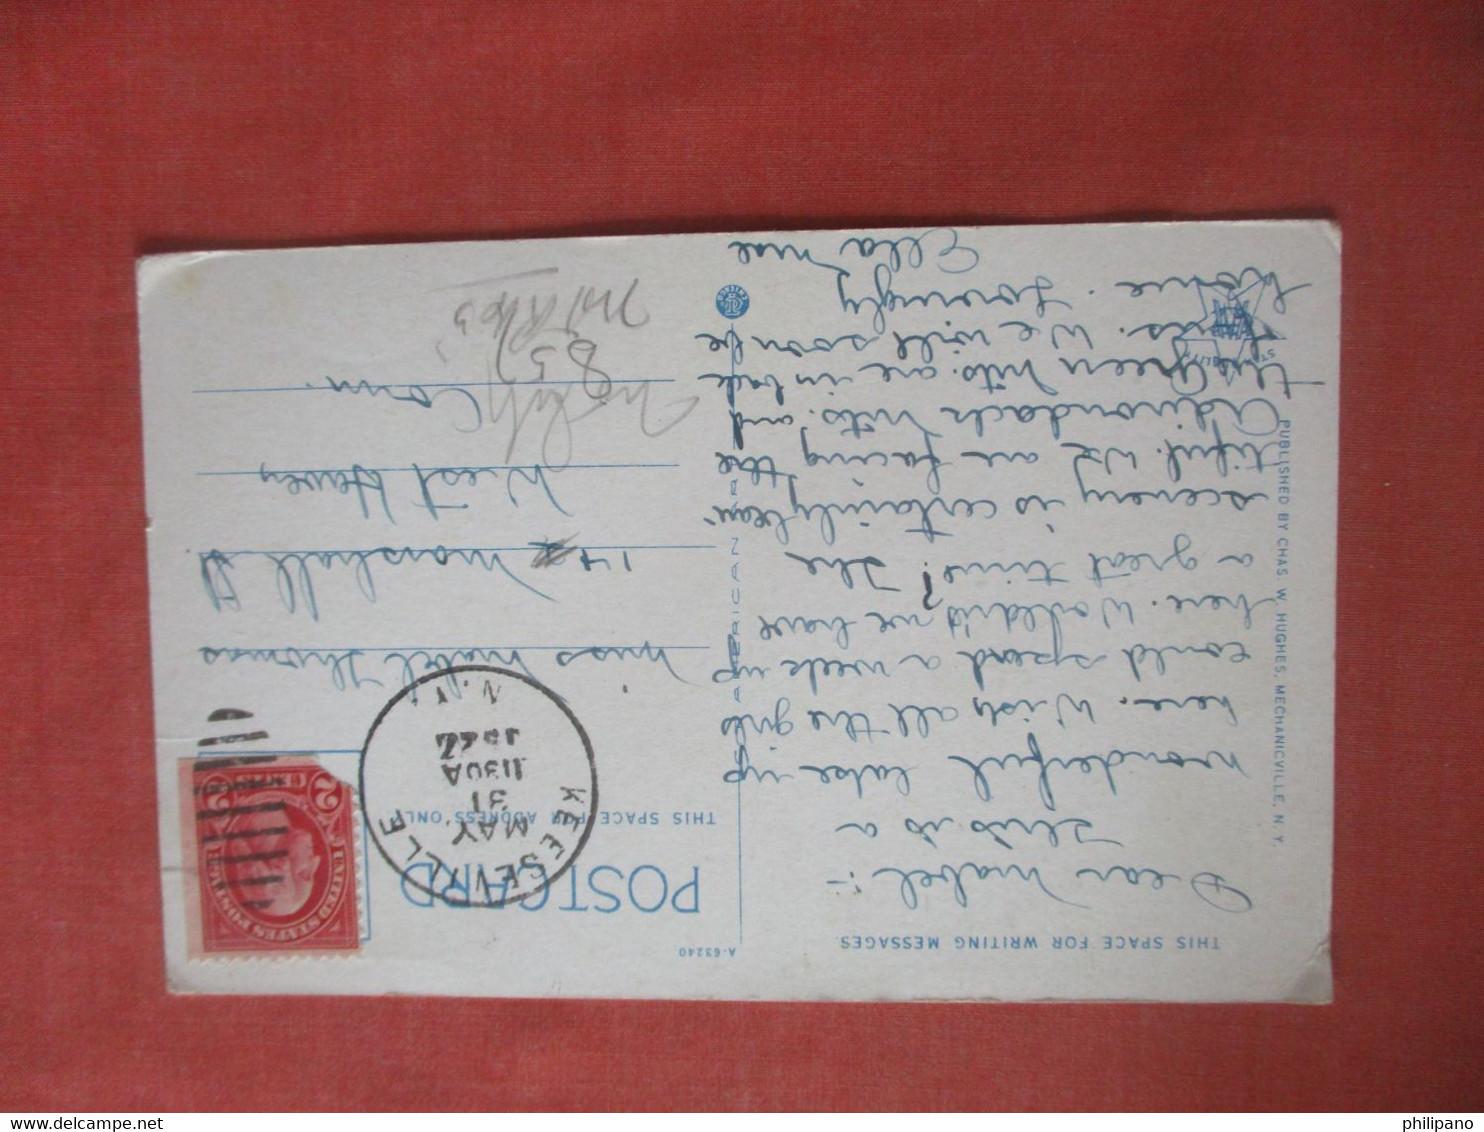 THIS SPACE FOR WRITING MESSAGES
Dear Mabel :-
This is a
wonderful lake up
here. Wish all the girls
could spend a week up
here. Wouldn't we have
a great time? The
scenery is certainly beau-
tiful. We are facing the
Adirondack Mts. and
the Green Mts. are in back
us. We will soon be
home. Lovingly
Ella Mae
PUBLISHED BY CHAS. W. HUGHES, MECHANICVILLE, N. Y.
A-63240
POSTCARD
THIS SPACE FOR ADDRESS ONLY
KEESEVILLE
MAY
31
1130A
N.Y.
UNITED STATES POSTAGE
2 CENTS 2
Miss Mabel Thomas
14 Marshall St
West Haven,
Conn.
85
philipano